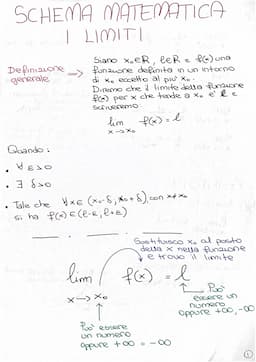 SCHEMA MATEMATICA
I LIMITI
Definizione
generale
→
Siano x₀∈R, l∈R e f(x) una
funzione definita in un intorno
di x₀ eccetto al più x₀.
Diremo che il limite della funzione
f(x) per x che tende a x₀ è l e
scriveremo:
lim f(x) = l
x→x₀
Quando:
• ∀ ε>0
• ∃ δ>0
• Tale che ∀x∈(x₀-δ, x₀+δ), con x≠x₀
si ha f(x)∈(l-ε, l+ε)
Sostituisco x₀ al posto
della x nella funzione
e trovo il limite
lim f(x) = l
x→x₀
Può essere
un numero
oppure +∞ = -∞
Può
essere un
numero
oppure +∞, -∞
1